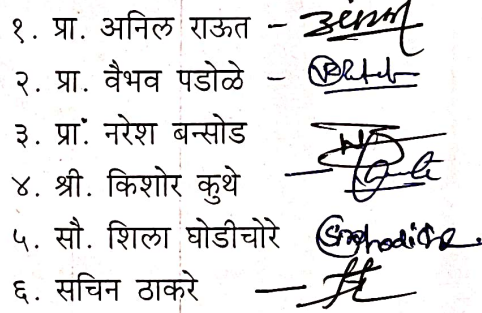 १. प्रा. अनिल राऊत -
२. प्रा. वैभव पडोळे -
३. प्रा. नरेश बन्सोड
४. श्री. किशोर कुथे —
५. सौ. शिला घोडीचोरे
६. सचिन ठाकरे —